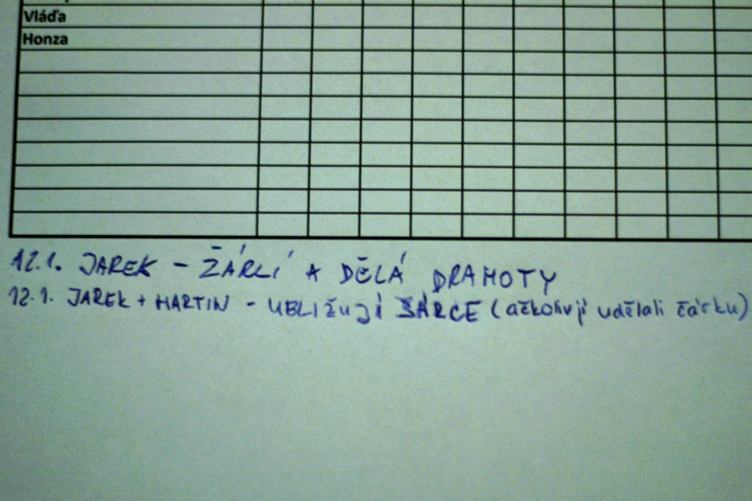 Vláďa
Honza
12.1. JAREK - ŽÁRLÍ A DĚLÁ DRAMOTY
12.1. JAREK + MARTIN - UBLIŽUJÍ ŠÁRCE (ačkoliv jí udělali čárku)